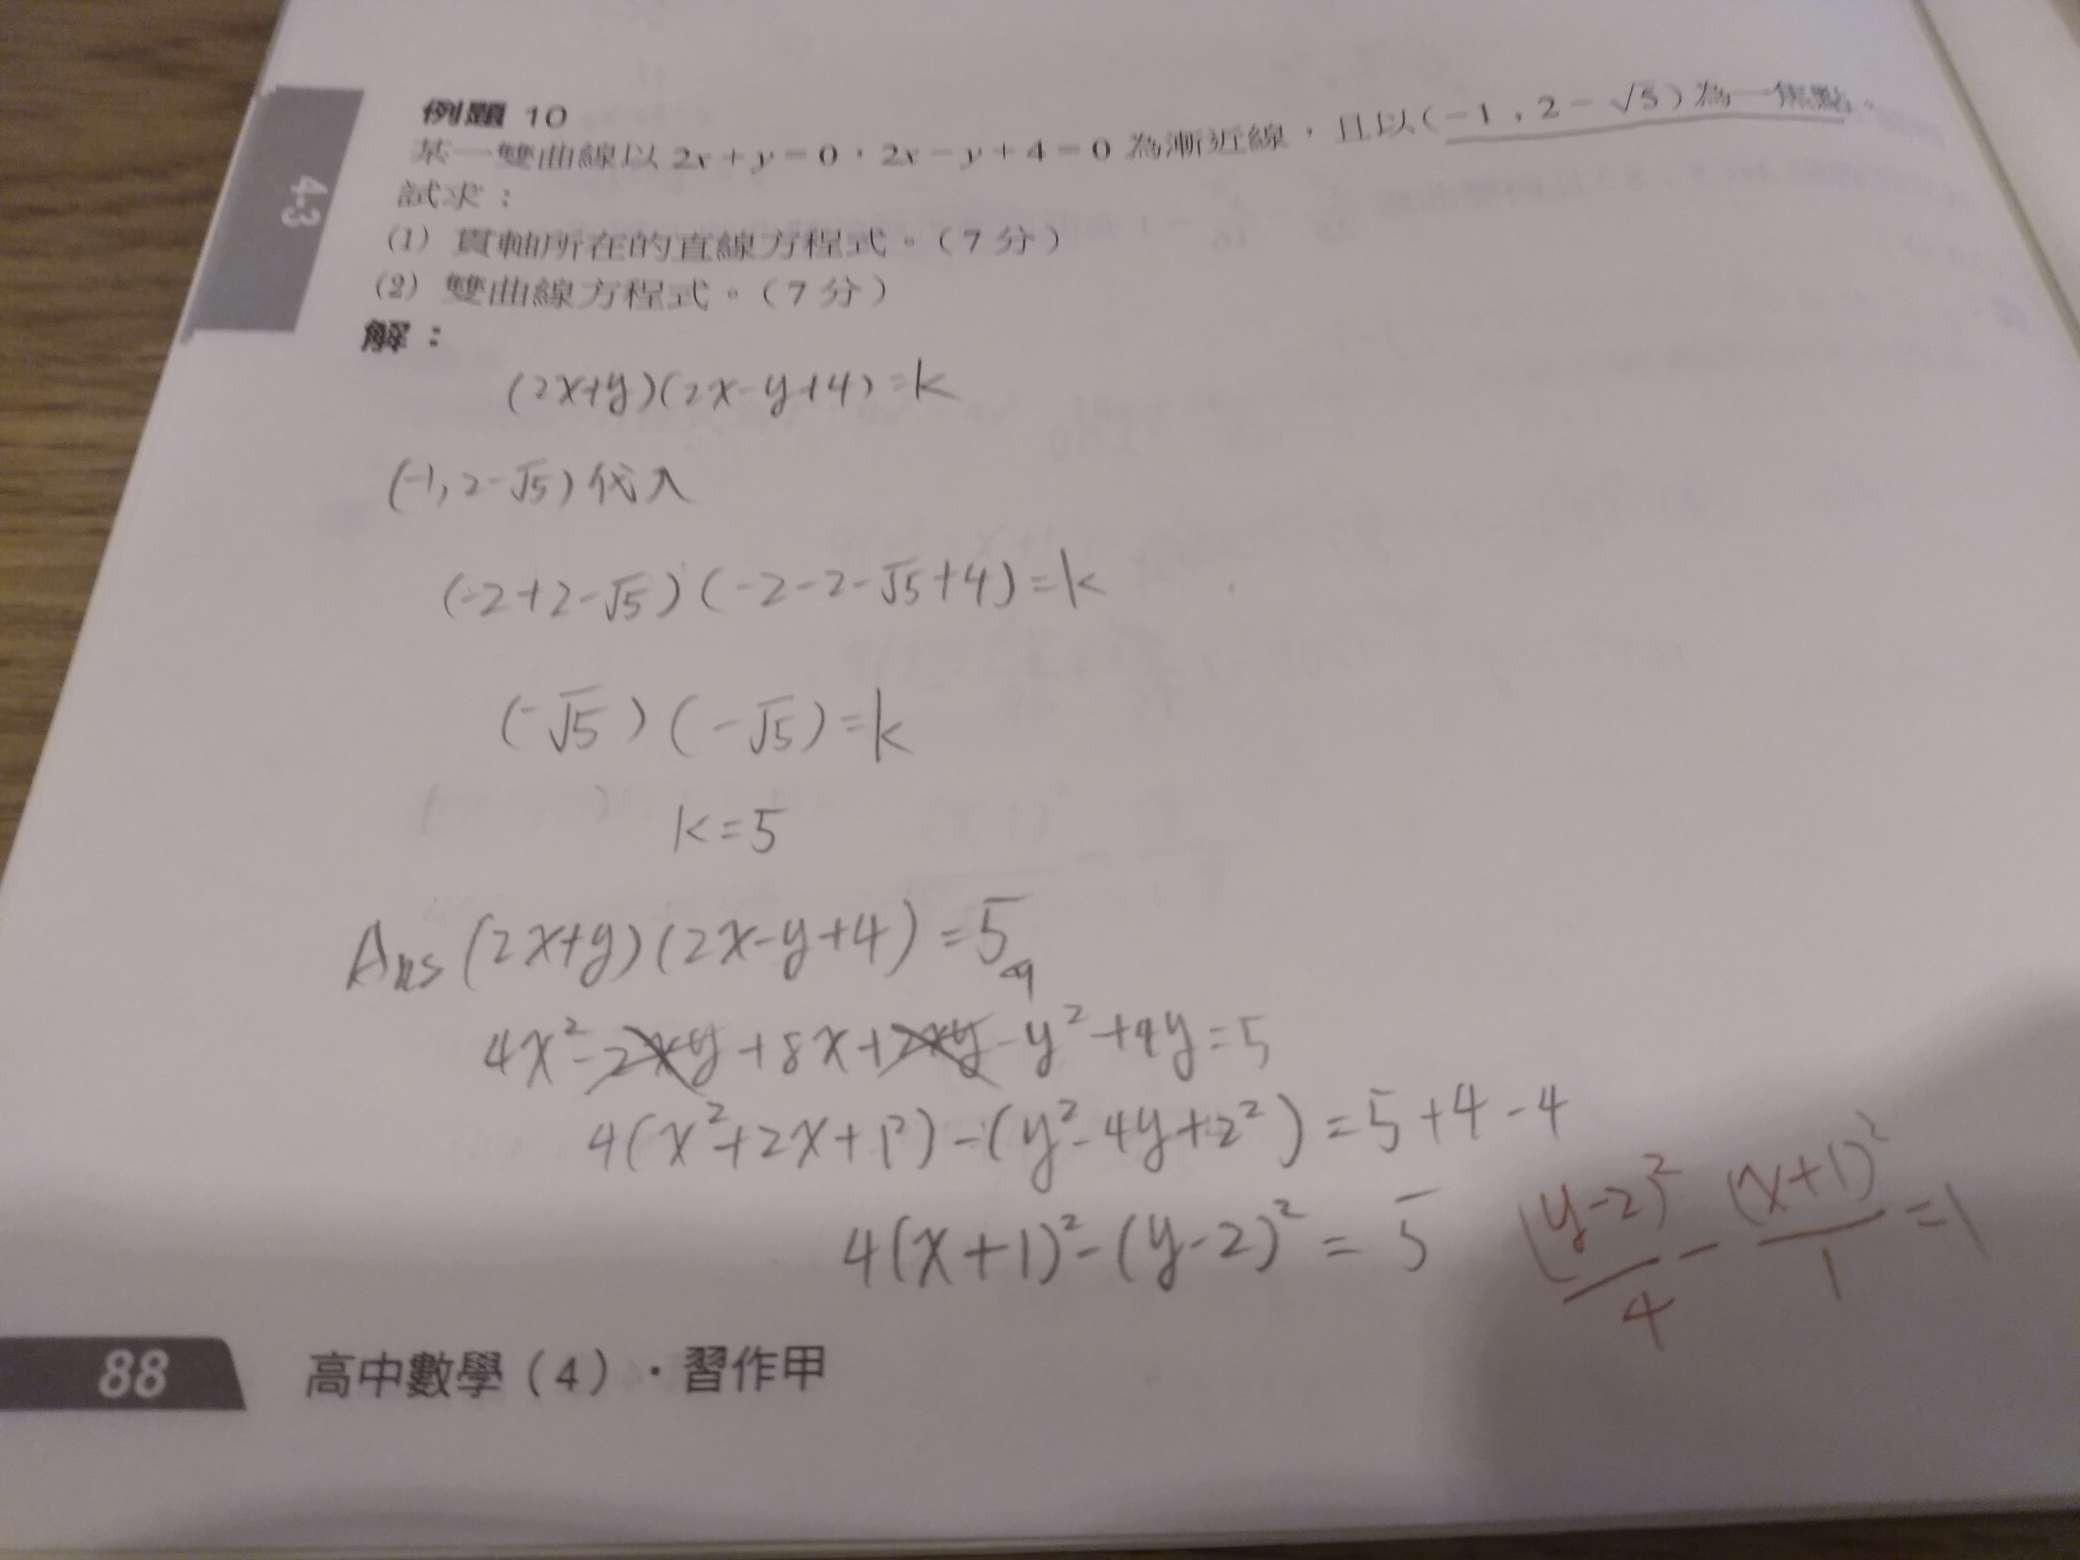 4-3
例題 10
某一雙曲線以 2x+y=0，2x-y+4=0 為漸近線，且以(-1，2-√5)為一焦點。
試求：
(1) 貫軸所在的直線方程式。(7分)
(2) 雙曲線方程式。(7分)
解：
(2x+y)(2x-y+4)=k
(-1,2-√5)代入
(-2+2-√5)(-2-2-√5+4)=k
(-√5)(-√5)=k
k=5
Ans (2x+y)(2x-y+4)=5
4x²-2xy+8x+2xy-y²+4y=5
4(x²+2x+1²)-(y²-4y+2²)=5+4-4
4(x+1)²-(y-2)²=5
(y-2)²/4-(x+1)²/1=1
88 高中數學(4)・習作甲